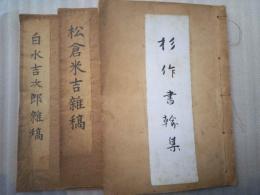 杉作書翰集
松倉米吉雑稿
白水吉次郎雑稿